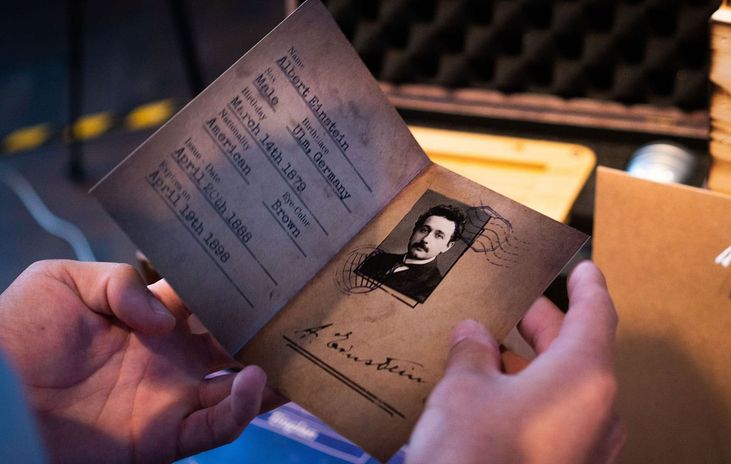 Name
Albert Einstein
Sex
Male
Birthday
March 14th 1879
Birthplace
Ulm, Germany
Nationality
American
Eye-Color
Brown
Issue Date
April 20th 1888
Expires on
April 19th 1898
A. Einstein